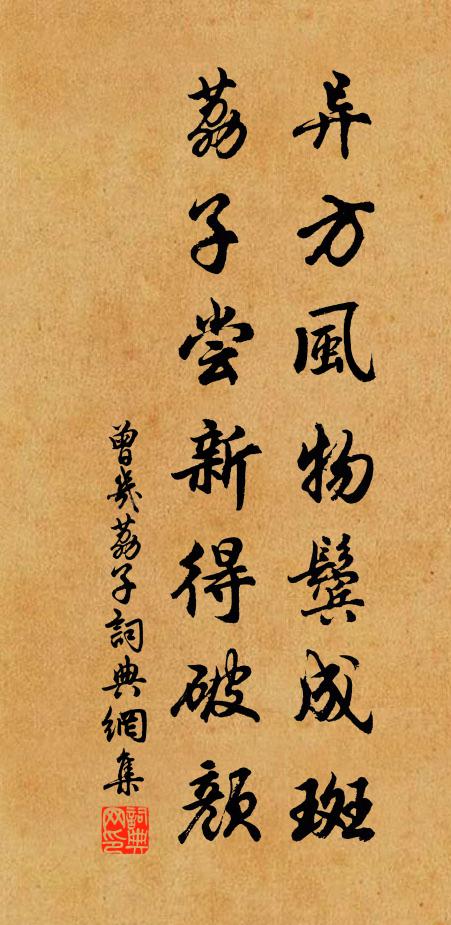 异方風物鬓成斑
荔子尝新得破顔
曾幾荔子詞典網集
詞典網印